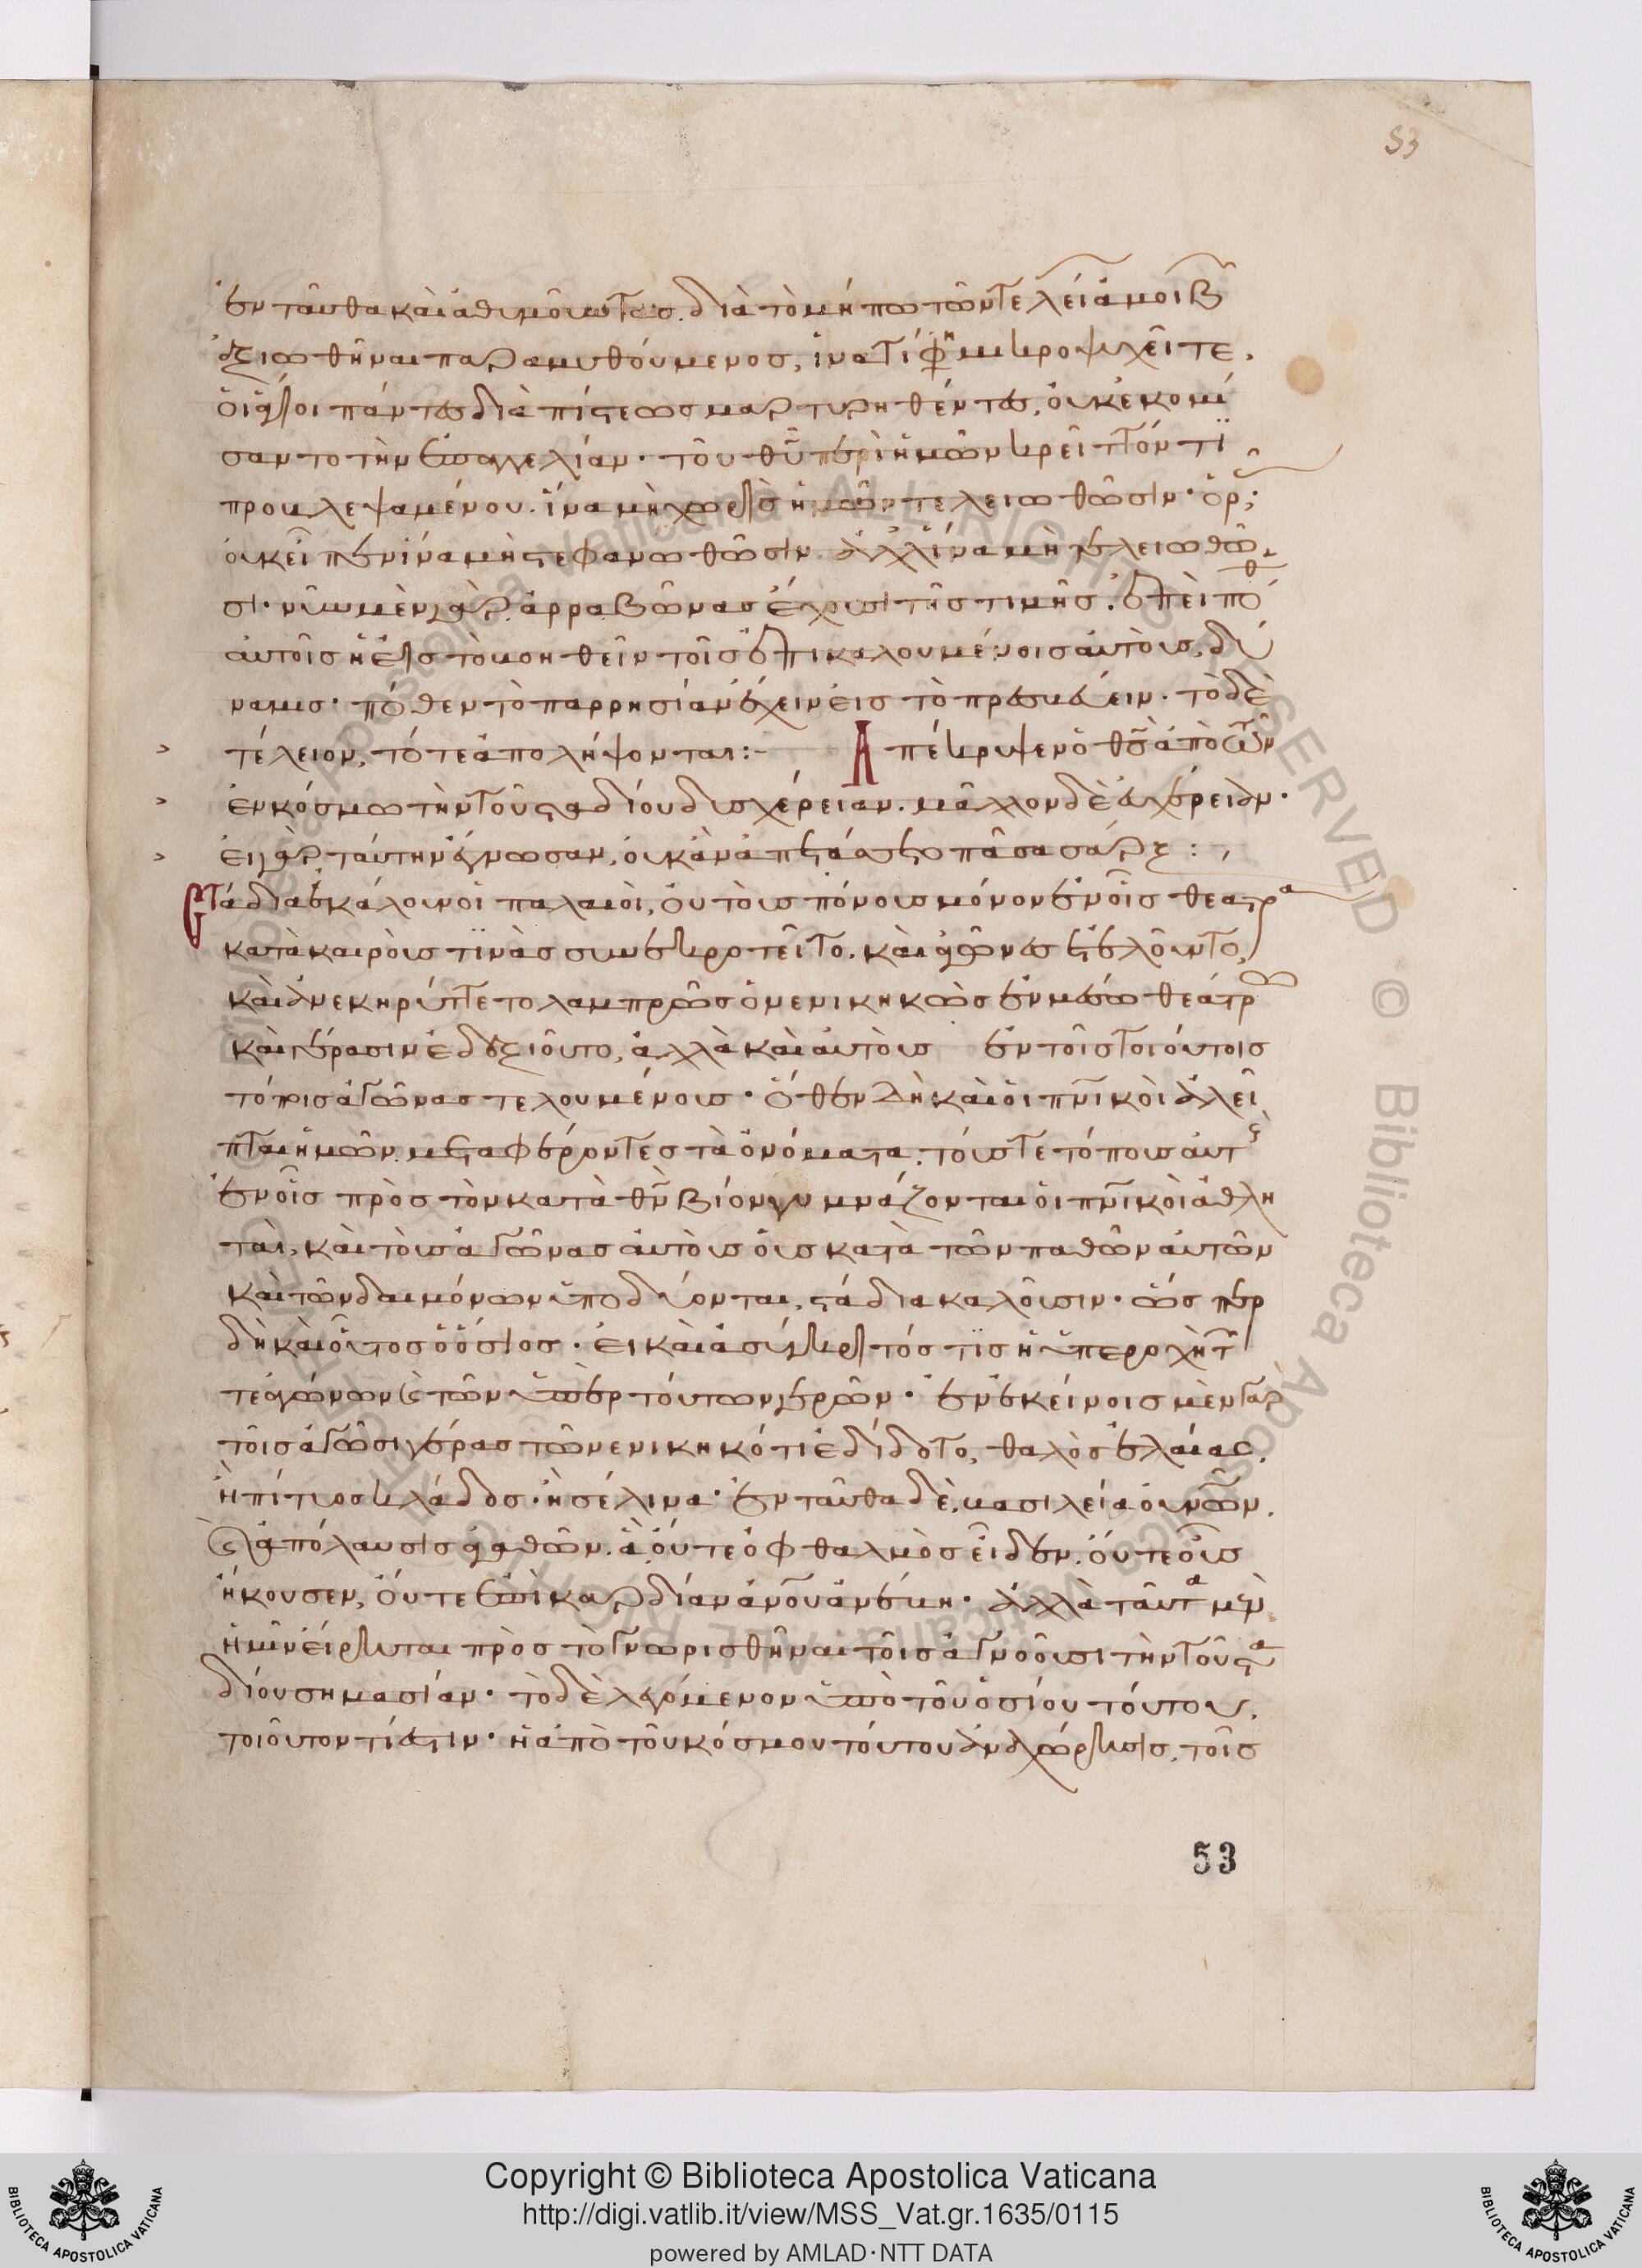 53
ἐνταῦθα καὶ ἀθυμοῦντας. διὰ τὸ μήπω τῶν τελείων ἀμοιβῶν
ἀξιωθῆναι παραμυθούμενος, ἵνα τί φησι μικροψυχεῖτε,
οἱ ἅγιοι πάντες διὰ πίστεως μαρτυρηθέντες, οὐκ ἐκομί
σαντο τὴν ἐπαγγελίαν· τοῦ θῦ περὶ ἡμῶν κρεῖττόν τι
προβλεψαμένου. ἵνα μὴ χωρὶς ἡμῶν τελειωθῶσιν· ὁρᾷς;
οὐκ εἶπεν ἵνα μὴ στεφανωθῶσιν. ἀλλ' ἵνα μὴ τελειωθῶ
σι· νῦν μὲν γὰρ ἀρραβῶνας ἔχουσι τῆς τιμῆς. ἐπεὶ πόθεν
αὐτοῖς ἡ εἰς τὸ βοηθεῖν τοῖς ἐπικαλουμένοις αὐτοὺς, δύ
ναμις· πόθεν τὸ παρρησίαν ἔχειν εἰς τὸ πρεσβεύειν. τὸ δὲ
τέλειον, τότε ἀπολήψονται:- Ἀπέκρυψεν ὁ θς ἀπὸ τῶν
ἐν κόσμω τὴν τοῦ σταδίου δυσχέρειαν. μᾶλλον δὲ εὐχέρειαν·
εἰ γὰρ ταύτην ἔγνωσαν, οὐκ ἂν ἀπετάξατο πᾶσα σάρξ:,
Στάδια ἐκάλουν οἱ παλαιοὶ, οὐ τοὺς τόπους μόνον ἐν οἷς θέατρα
κατὰ καιροὺς τινὰς συνεκροτεῖτο. καὶ ἀγῶνες ἐτελοῦντο,
καὶ ἀνεκηρύττετο λαμπρῶς ὁ νενικηκὼς ἐν μέσω θεάτρω
καὶ γερασιν ἐδεξιοῦτο, ἀλλὰ καὶ αὐτοὺς ἐν τοῖς τοιούτοις
τόποις ἀγῶνας τελουμένους· ὅθεν δὴ καὶ οἱ πνικοὶ ἀλεῖ
πται ἡμῶν μεταφέροντες τὰ ὀνόματα. τούς τε τόπους αὐτοὺς
ἐν οἷς πρὸς τὸν κατὰ θν βίον γυμνάζονται οἱ πνικοὶ ἀθλη
ταὶ, καὶ τοὺς ἀγῶνας αὐτοὺς οὓς κατὰ τῶν παθῶν αὐτῶν
καὶ τῶν δαιμόνων ὑποδύονται, στάδια καλοῦσιν· ὥσπερ
δὴ καὶ οὗτος ὁ ὅσιος· εἰ καὶ ἀσύγκριτός τις ἡ ὑπεροχὴ τῶν
τε ἀγώνων καὶ τῶν ὑπὲρ τούτων γερῶν· ἐν ἐκείνοις μὲν γὰρ
τοῖς ἀγῶσι γέρας τῶ νενικηκότι ἐδίδοτο, θαλὸς ἐλαίας.
ἢ πίτυος κλάδος· ἢ σέλινα· ἐνταῦθα δὲ, βασιλεία οὐνῶν.
καὶ ἀπόλαυσις ἀγαθῶν. ἃ οὔτε ὀφθαλμὸς εἶδεν. οὔτε οὖς
ἤκουσεν, οὔτε ἐπὶ καρδίαν ἀνου ἀνέβη· ἀλλὰ ταῦτα μὲν
ἡμῖν εἴρηται πρὸς τὸ γνωρισθῆναι τοῖς ἀγνοοῦσι τὴν τοῦ στα
δίου σημασίαν· τὸ δὲ λεγόμενον ὑπὸ τοῦ ὁσίου τούτου,
τοιοῦτον τί ἐστιν· ἡ ἀπὸ τοῦ κόσμου τούτου ἀναχώρησις, τοῖς
53
Copyright © Biblioteca Apostolica Vaticana
http://digi.vatlib.it/view/MSS_Vat.gr.1635/0115
powered by AMLAD·NTT DATA